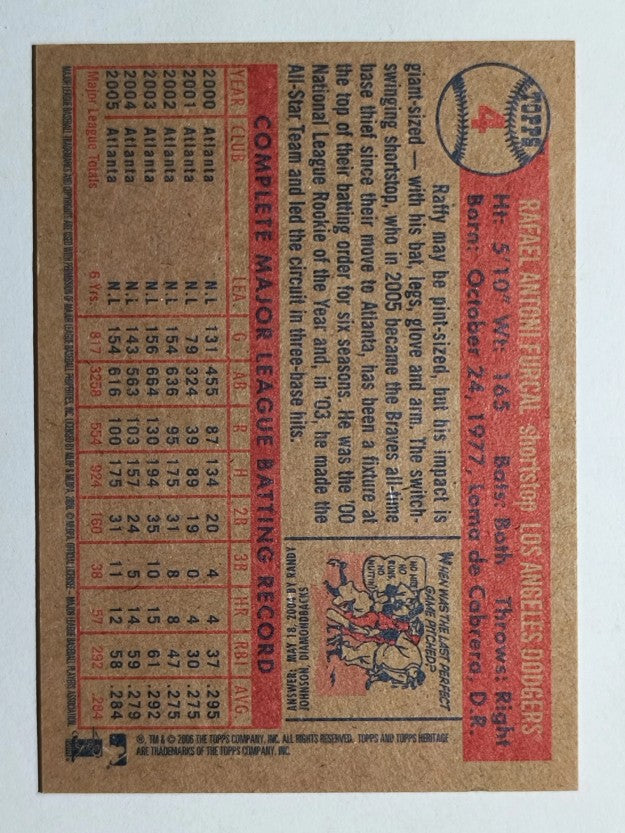 TOPPS
4
RAFAEL ANTONI FURCAL shortstop LOS ANGELES DODGERS
Ht: 5'10" Wt: 165 Bats: Both Throws: Right
Born: October 24, 1977, Loma de Cabrera, D.R.
Raffy may be pint-sized, but his impact is
giant-sized — with his bat, legs, glove and arm. The switch-
swinging shortstop, who in 2005 became the Braves all-time
base thief since their move to Atlanta, has been a fixture at
the top of their batting order for six seasons. He was the '00
National League Rookie of the Year and, in '03, he made the
All-Star Team and led the circuit in three-base hits.
WHEN WAS THE LAST PERFECT
GAME PITCHED?
NO HITS
NO
RUNS
NO
NUTTIN'!
ANSWER: MAY 18, 2004 BY RANDY
JOHNSON (DIAMONDBACKS)
COMPLETE MAJOR LEAGUE BATTING RECORD
YEAR CLUB LEA G AB R H 2B 3B HR RBI AVG
2000 Atlanta N.L 131 455 87 134 20 4 4 37 .295
2001 Atlanta N.L 79 324 39 89 19 0 4 30 .275
2002 Atlanta N.L 154 636 95 175 31 8 8 47 .275
2003 Atlanta N.L 156 664 130 194 35 10 15 61 .292
2004 Atlanta N.L 143 563 103 157 24 5 14 59 .279
2005 Atlanta N.L 154 616 100 175 31 11 12 58 .284
Major League Totals 6 Yrs. 817 3258 554 924 160 38 57 292 .284
®, TM & © 2006 THE TOPPS COMPANY, INC. ALL RIGHTS RESERVED. TOPPS AND TOPPS HERITAGE
ARE TRADEMARKS OF THE TOPPS COMPANY, INC.